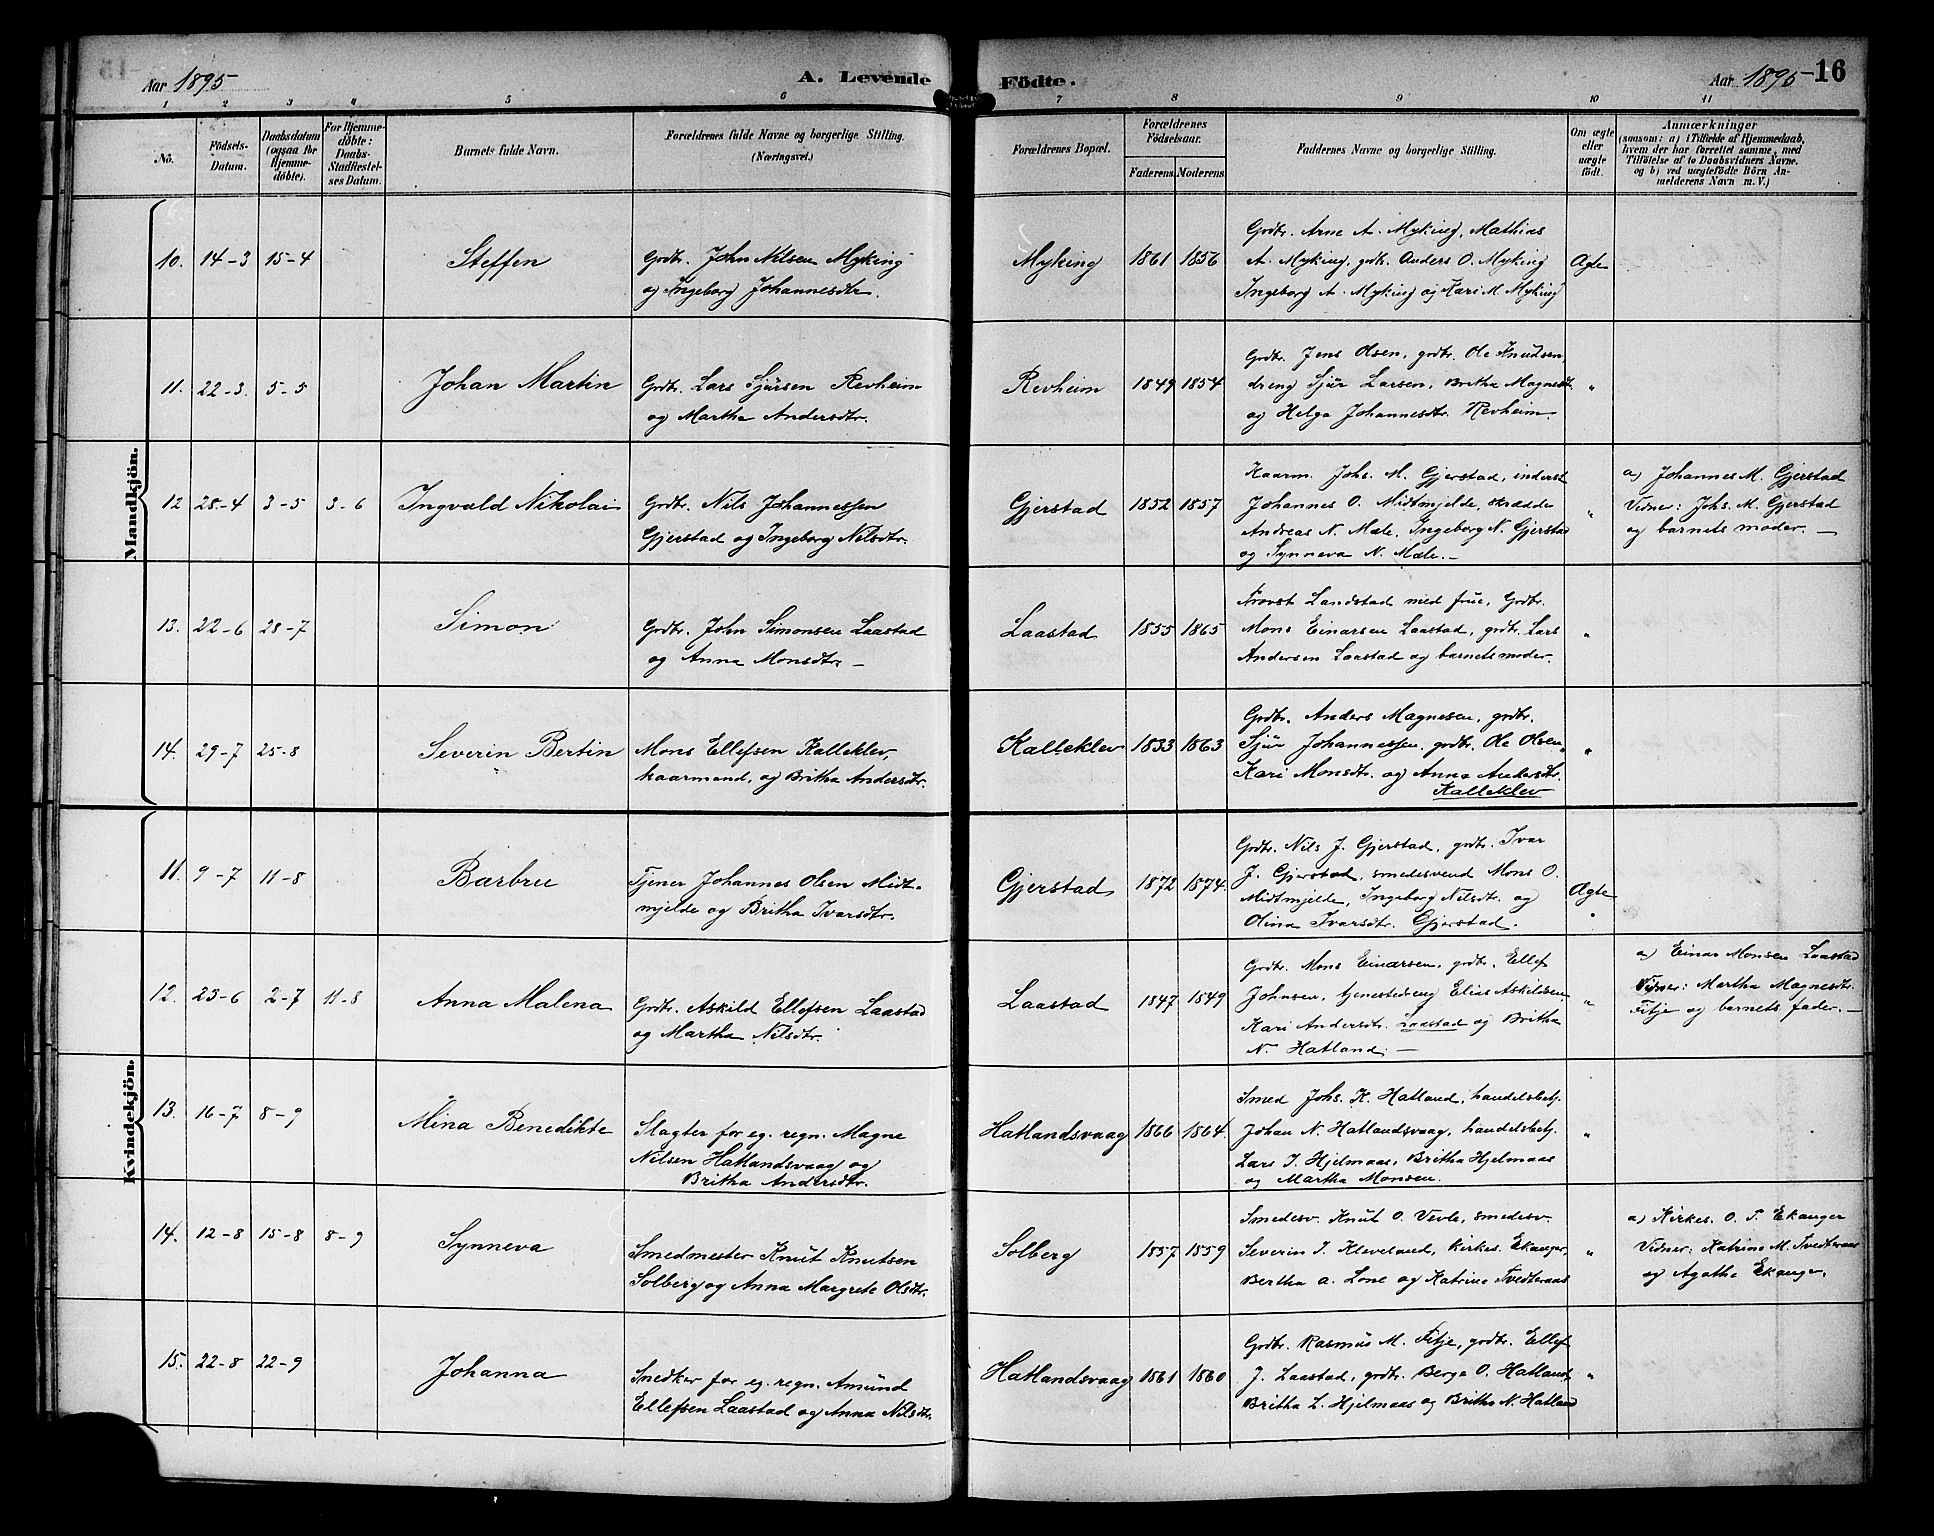 Aar 1895
A. Levende Födte.
Aar 1895 - 16
1 2 3 4 5 6 7 8 9 10 11
No.
Födsels-Datum.
Daabsdatum (ogsaa for Hjemme-döbte).
For Hjemme-döbte: Daabs-Stadfæstel-ses Datum.
Barnets fulde Navn.
Forældrenes fulde Navne og borgerlige Stilling. (Næringsvei.)
Forældrenes Bopæl.
Forældrenes Födselsaar.
Faderens. Moderens.
Faddernes Navne og borgerlige Stilling.
Om ægte eller uægte födt.
Anmærkninger
(saasom: a) i Tilfælde af Hjemmedaab,
hvem der har forrettet samme, med
Tilföielse af to Daabsvidners Navne.
og b) ved uægtefödte Börn An-
melderens Navn m. V.)
Mandkjön.
10. 14-3 15-4 Steffen
Grdbr. John Nilsen Myking
og Ingeborg Johannesdtr.
Myking 1861 1856
Grdbr. Arne A. Myking, Mathias
A. Myking, grdb. Anders O. Myking
Ingeborg A. Myking og Kari M. Myking
Ægte
11. 22-3. 5-5 Johan Martin
Grdbr. Lars Sjursen Revheim
og Martha Andersdtr.
Revheim 1849 1854
Grdbr. Jens Olsen, grdbr. Ole Knudsen
dreng Sjur Larsen, Britha Magnesdt.
og Helga Johannesdtr. Revheim.
"
12 28-4 3-5 3-6 Ingvald Nikolai
Grdbr. Nils Johannessen
Gjerstad og Ingeborg Nilsdtr.
Gjerstad 1852 1857
Kaarm. Johs. M. Gjerstad, inderst
Johannes O. Midtmjelde, skrædder
Andreas N. Mæle, Ingeborg N. Gjerstad
og Synneva N. Mæle. -
"
a) Johannes M. Gjerstad
Vidner: Johs. M. Gjerstad
og barnets moder. -
13. 22-6 28-7 Simon
Grdbr. John Simonsen Laastad
og Anna Monsdtr. -
Laastad 1855 1865
Provst Landstad med frue, Grdbr.
Mons Einarsen Laastad, grdbr. Lars
Andersen Laastad og barnets moder.
"
14. 29-7 25-8 Severin Bertin
Mons Ellefsen Kalleklev,
kaarmand, og Britha Andersdtr.
Kalleklev 1833 1863
Grdbr. Anders Magnesen, grdbr.
Sjur Johannessen, grdbr. Ole Olsen,
Kari Monsdtr. og Anna Andersdtr.
Kalleklev
"
Kvindekjön.
11. 9-7 11-8 Barbru
Tjener Johannes Olsen Midt-
mjelde og Britha Ivarsdtr.
Gjerstad 1872 1874
Grdbr. Nils J. Gjerstad, grdbr. Ivar
J. Gjerstad, smedesvend Mons O.
Midtmjelde, Ingeborg Nilsdtr. og
Olina Ivarsdtr. Gjerstad.
Ægte
"
12. 23-6 2-7 11-8 Anna Malena
Grdbr. Askild Ellefsen Laastad
og Martha Nilsdtr.
Laastad 1847 1849
Grdbr. Mons Einarsen, grdbr. Ellef
Johnsen, tjenestedreng Elias Askildsen
Kari Andersdtr. Laastad og Britha
N. Hatland. -
"
a) Einar Monsen Laastad
Vidner: Martha Magnesdtr.
Fitje og barnets fader. -
13. 16-7 8-9 Mina Benedikte
Slagter for eg. regn. Magne
Nilsen Hatlandsvaag og
Britha Andersdtr.
Hatlandsvaag 1866 1864.
Smed Johs. K. Hatland, handelsbetj.
Johan N. Hatlandsvaag, handelsbetj.
Lars I. Hjelmaas, Britha Hjelmaas
og Martha Monsen.
"
14. 12-8 15-8 8-9 Synneva
Smedmester Knut Knutsen
Solberg og Anna Margrete Olsdtr.
Solberg 1857 1859
Smedesv. Knut O. Vevle, smedesv.
Severin I. Kleveland, kirkes. Ekanger,
Bertha A. Lone og Katrine Tvedteraas
"
a) Kirkes. O. T. Ekanger
Vidner: Katrine M. Tvedteraas
og Agathe Ekanger.
15. 22-8 22-9 Johanna
Snedker for eg. regn. Amund
Ellefsen Laastad og Anna Nilsdtr.
Hatlandsvaag 1861 1860
Grdbr. Rasmus M. Fitje, grdbr. Ellef
J. Laastad, grdbr. Berge O. Hatland,
Britha L. Hjelmaas og Britha N. Hatland
"